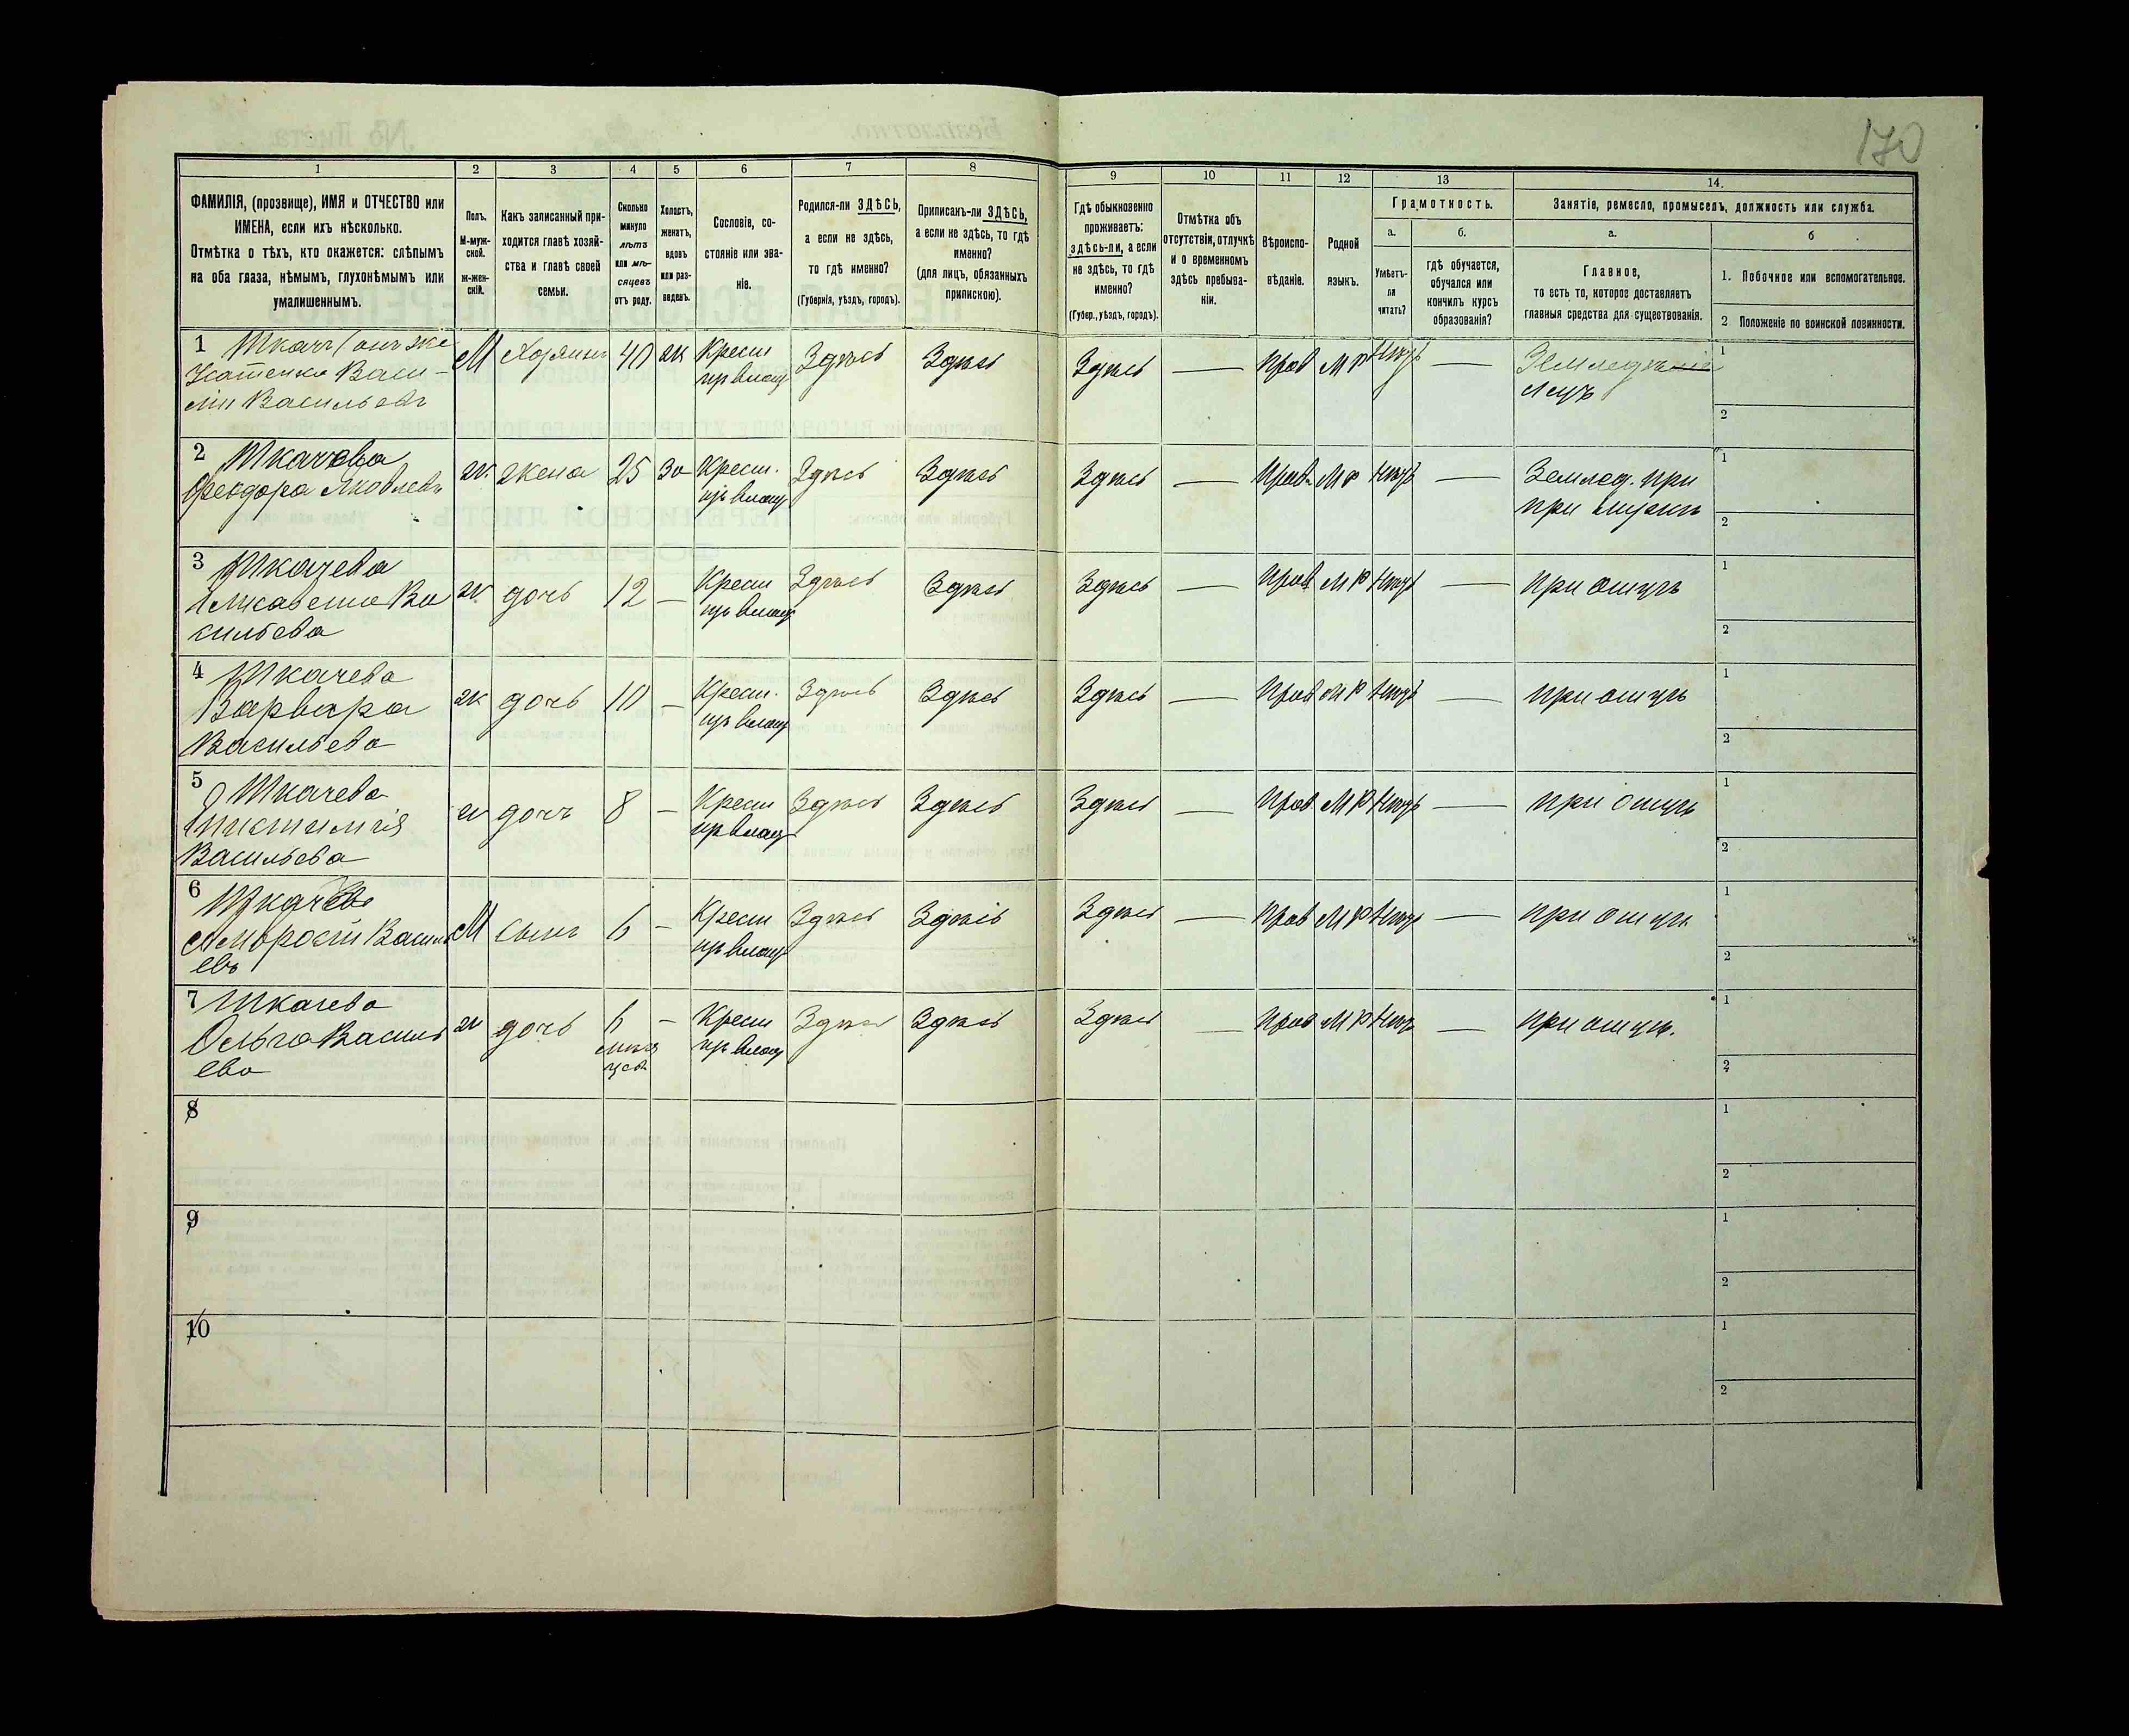 170
1 2 3 4 5 6 7 8 9 10 11 12 13 14.
ФАМИЛІЯ, (прозвище), ИМЯ и ОТЧЕСТВО или
ИМЕНА, если ихъ нѣсколько.
Отмѣтка о тѣхъ, кто окажется: слѣпымъ
на оба глаза, нѣмымъ, глухонѣмымъ или
умалишеннымъ.
Полъ.
М-муж-
ской.
Ж-жен-
скій.
Какъ записанный при-
ходится главѣ хозяй-
ства и главѣ своей
семьи.
Сколько
минуло
лѣтъ
или мѣ-
сяцевъ
отъ роду.
Холостъ,
женатъ,
вдовъ
или раз-
веденъ.
Сословіе, со-
стояніе или зва-
ніе.
Родился-ли ЗДѢСЬ,
а если не здѣсь,
то гдѣ именно?
(Губернія, уѣздъ, городъ).
Приписанъ-ли ЗДѢСЬ,
а если не здѣсь, то гдѣ
именно?
(для лицъ, обязанныхъ
припискою).
Гдѣ обыкновенно
проживаетъ:
ЗДѢСЬ-ЛИ, а если
не здѣсь, то гдѣ
именно?
(Губер., уѣздъ, городъ).
Отмѣтка объ
отсутствіи, отлучкѣ
и о временномъ
здѣсь пребыва-
ніи.
Вѣроиспо-
вѣданіе.
Родной
языкъ.
Грамотность.
а.
Умѣетъ-
ли
читать?
б.
гдѣ обучается,
обучался или
кончилъ курсъ
образованія?
Занятіе, ремесло, промыселъ, должность или служба.
а.
Главное,
то есть то, которое доставляетъ
главныя средства для существованія.
б
1. Побочное или вспомогательное.
2 Положеніе по воинской повинности.
1 Ткачъ (онъ же
Васи-
лій Васильевъ
М Хозяинъ 40 ж Крест Здѣсь Здѣсь Здѣсь — Прав МР нѣтъ —
1
2
2 Ткачева
Феодора Яковлева
ж. жена 25 Крест. Здѣсь Здѣсь Здѣсь — Прав МР нѣтъ — Землед. при
при мужѣ
1
2
3 Ткачева
Елисавета Ва
сильева
ж дочь 12 — Крест Здѣсь Здѣсь Здѣсь — Прав МР нѣтъ — при отцѣ
1
2
4 Ткачева
Варвара
Васильева
ж дочь 10 — Крест. Здѣсь Здѣсь Здѣсь — Прав МР нѣтъ — при отцѣ
1
2
5 Ткачева
Васильева
ж дочь 8 — Крест Здѣсь Здѣсь Здѣсь — Прав МР нѣтъ — при отцѣ
1
2
6 Ткачевъ
Василь
евъ
М сынъ 6 — Крест Здѣсь Здѣсь Здѣсь — Прав МР нѣтъ — при отцѣ
1
2
7 Ткачева
Ольга Василь
ева
ж дочь 6 — Крест Здѣсь Здѣсь Здѣсь — Прав МР нѣтъ — при отцѣ.
мѣся
цев
1
2
8
1
2
9
1
2
10
1
2